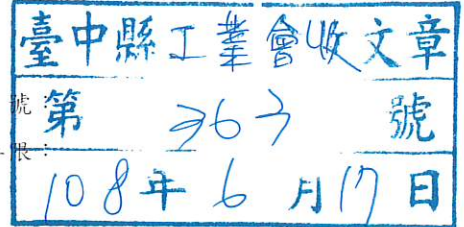 臺中縣工業會收文章
號：
第 363 號
限：
108年6月17日